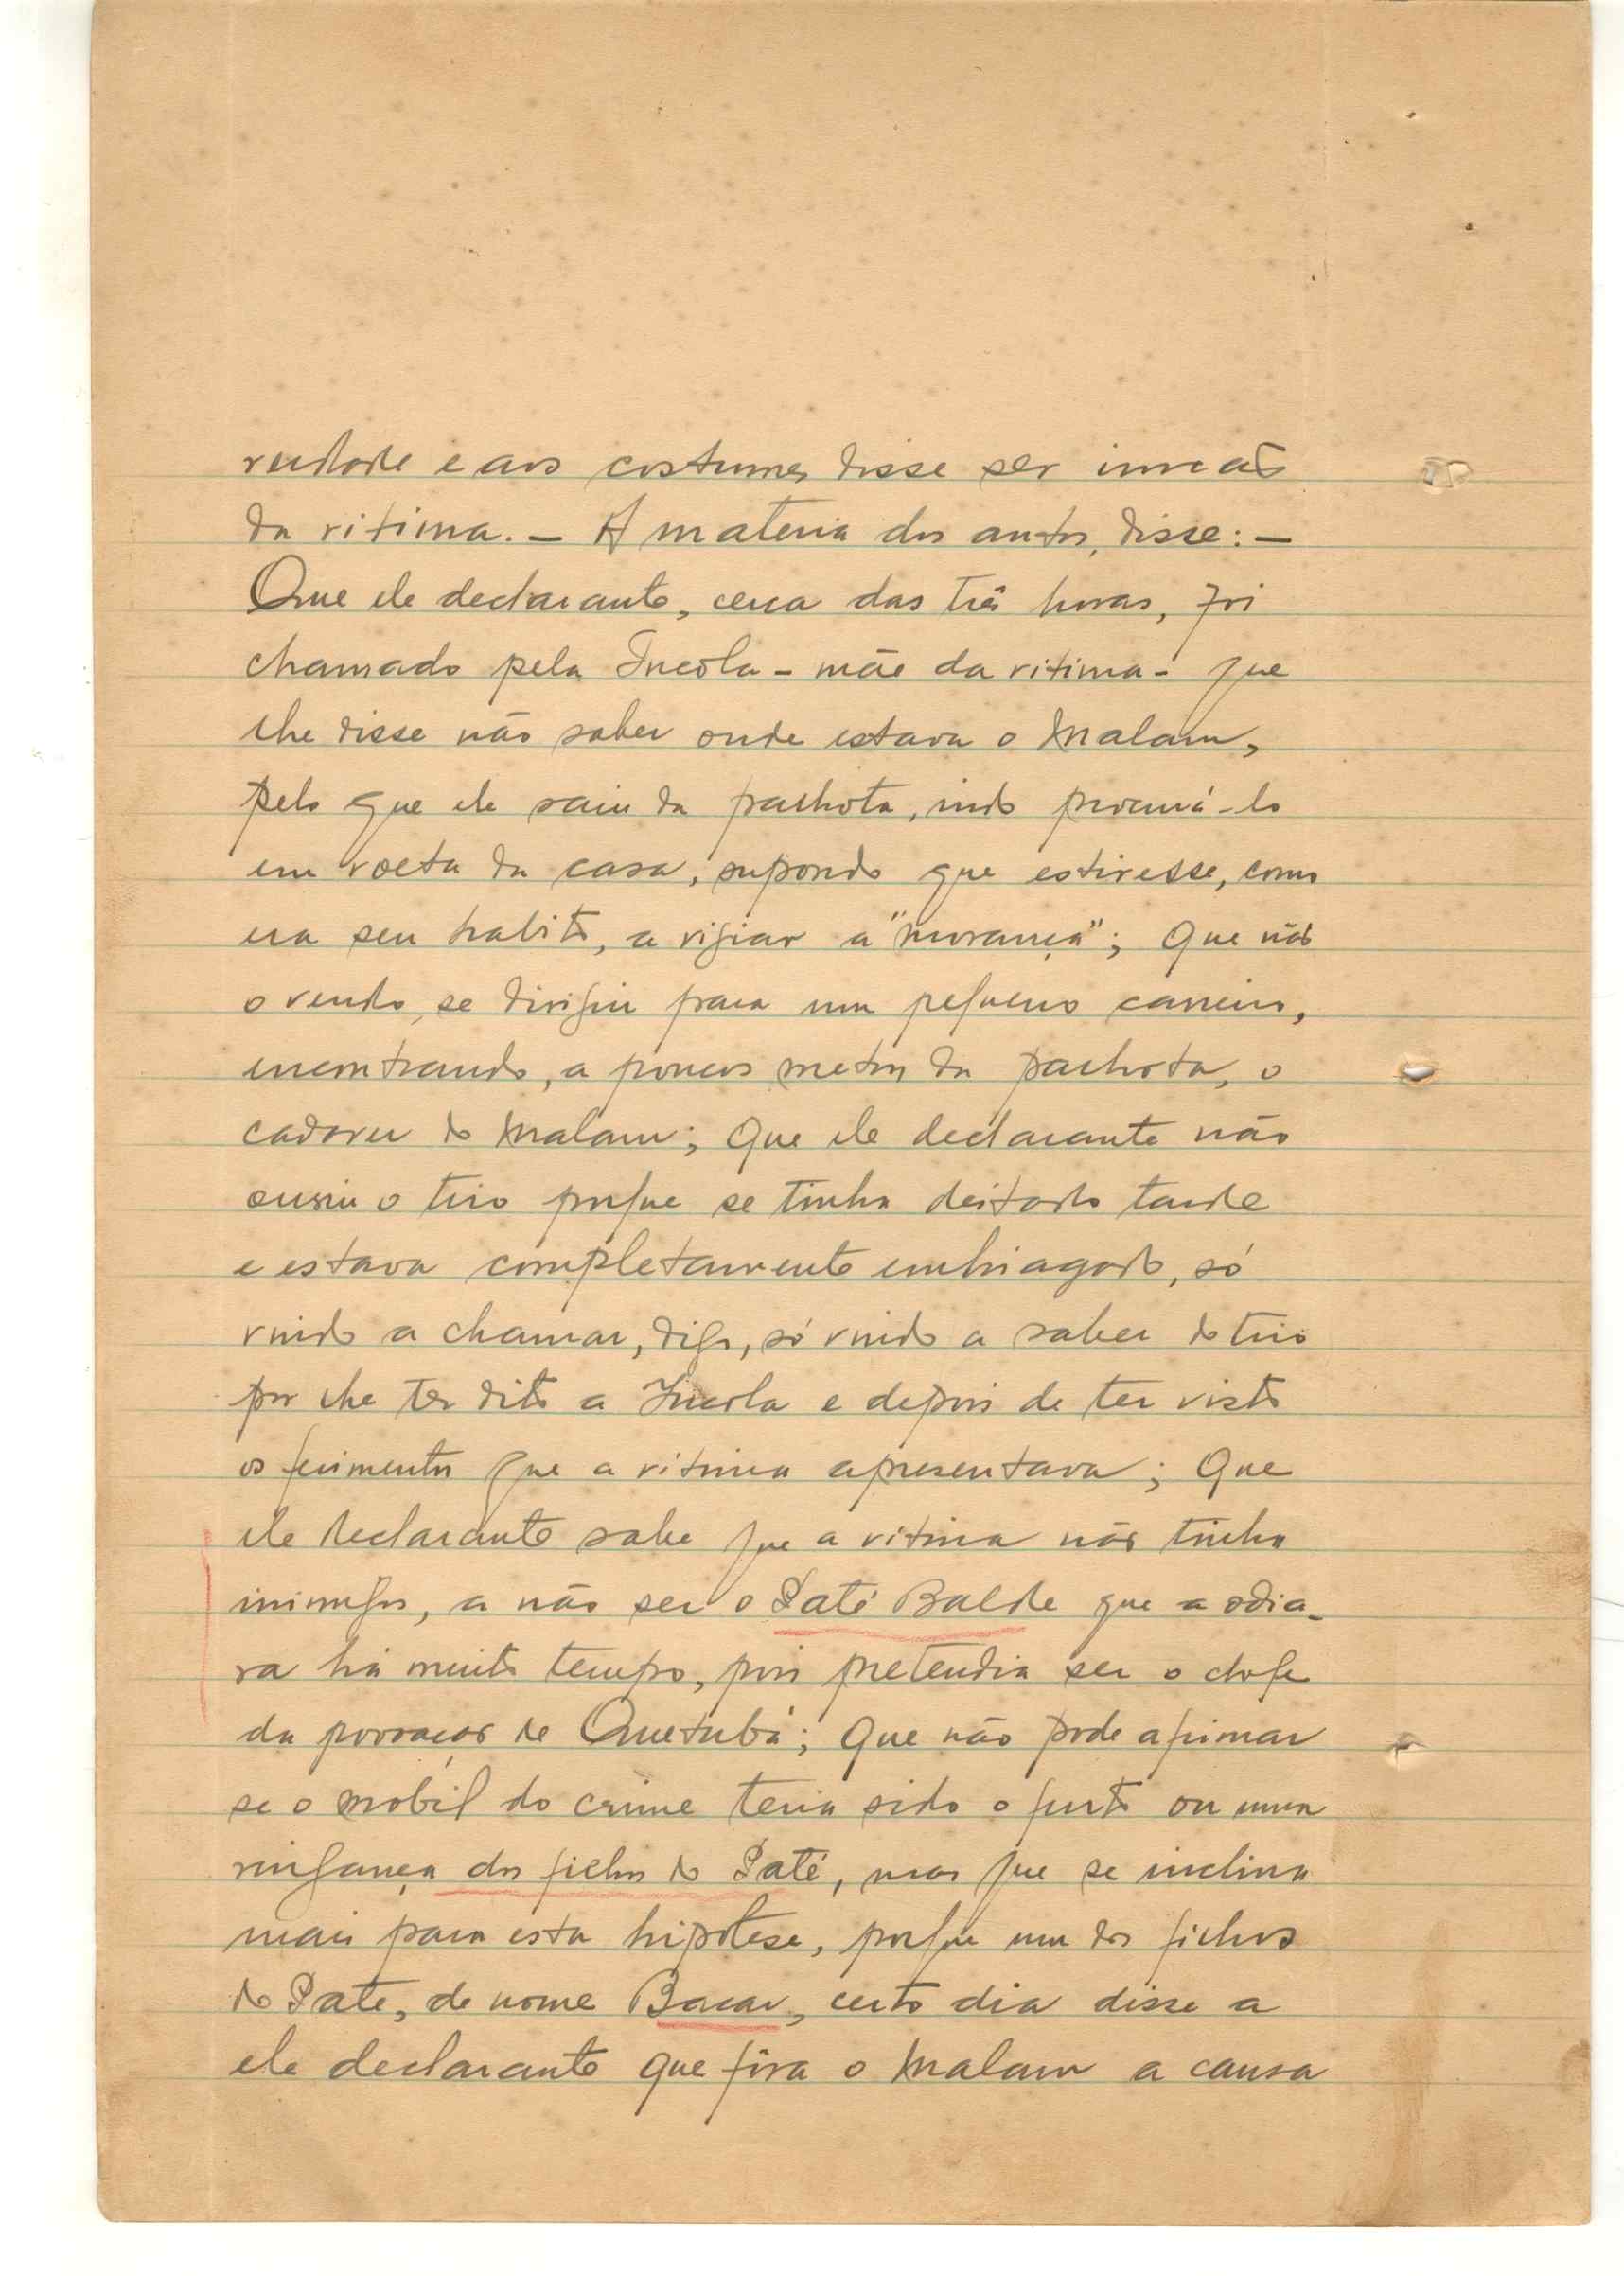 verdade e aos costumes disse ser irmão
da vitima. — A materia dos autos, disse: —
Que ele declarante, cerca das três horas, foi
chamado pela Incola - mãe da vitima - que
lhe disse não saber onde estava o Malam,
pelo que ele saiu da palhota, indo procurá-lo
em volta da casa, supondo que estivesse, como
era seu habito, a vigiar a "morança"; Que não
o vendo, se dirigiu para um pequeno carreiro,
encontrando, a poucos metros da palhota, o
cadaver do Malam; Que ele declarante não
ouviu o tiro porque se tinha deitado tarde
e estava completamente embriagado, só
vindo a chamar, digo, só vindo a saber do tiro
por lhe ter dito a Incola e depois de ter visto
os ferimentos que a vitima apresentava; Que
ele declarante sabe que a vitima não tinha
inimigos, a não ser o Paté Balde que a odia-
va há muito tempo, pois pretendia ser o chefe
da povoação de Quetubá; Que não pode afirmar
se o mobil do crime teria sido o furto ou uma
vingança dos filhos do Paté, mas que se inclina
mais para esta hipótese, porque um dos filhos
do Paté, de nome Bacar, certo dia disse a
ele declarante que fôra o Malam a causa